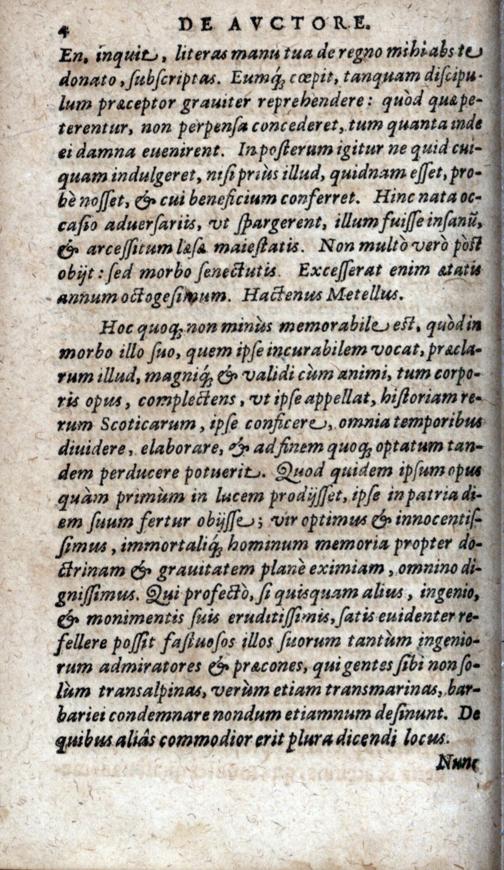 4 DE AVCTORE.
En, inquit, literas manu tua de regno mihi abs te
donato, ſubſcriptas. Eumq́; cœpit, tanquam diſcipu-
lum præceptor grauiter reprehendere: quòd quæ pe-
terentur, non perpenſa concederet, tum quanta inde
ei damna euenirent. In poſterum igitur ne quid cui-
quam indulgeret, niſi priùs illud, quidnam eſſet, pro-
bè noſſet, & cui beneficium conferret. Hinc nata oc-
caſio aduerſariis, vt ſpargerent, illum fuiſſe inſanũ,
& arceſſitum læſæ maieſtatis. Non multò verò pòst
obijt: ſed morbo ſenectutis. Exceſſerat enim ætatis
annum octogeſimum. Hactenus Metellus.
Hoc quoq; non minùs memorabile est, quòd in
morbo illo ſuo, quem ipſe incurabilem vocat, præcla-
rum illud, magniq́; & validi cùm animi, tum corpo-
ris opus, complectens, vt ipſe appellat, hiſtoriam re-
rum Scoticarum, ipſe conficere, omnia temporibus
diuidere, elaborare, & ad finem quoq; optatum tan-
dem perducere potuerit. Quod quidem ipſum opus
quàm primùm in lucem prodijſſet, ipſe in patria di-
em ſuum fertur obijſſe; vir optimus & innocentiſ-
ſimus, immortaliq́; hominum memoria propter do-
ctrinam & grauitatem planè eximiam, omnino di-
gniſſimus. Qui profectò, ſi quisquam alius, ingenio,
& monimentis ſuis eruditiſſimis, ſatis euidenter re-
fellere poſſit faſtuoſos illos ſuorum tantùm ingenio-
rum admiratores & præcones, qui gentes ſibi non ſo-
lùm transalpinas, verùm etiam transmarinas, bar-
bariei condemnare nondum etiamnum deſinunt. De
quibus aliâs commodior erit plura dicendi locus.
Nunc